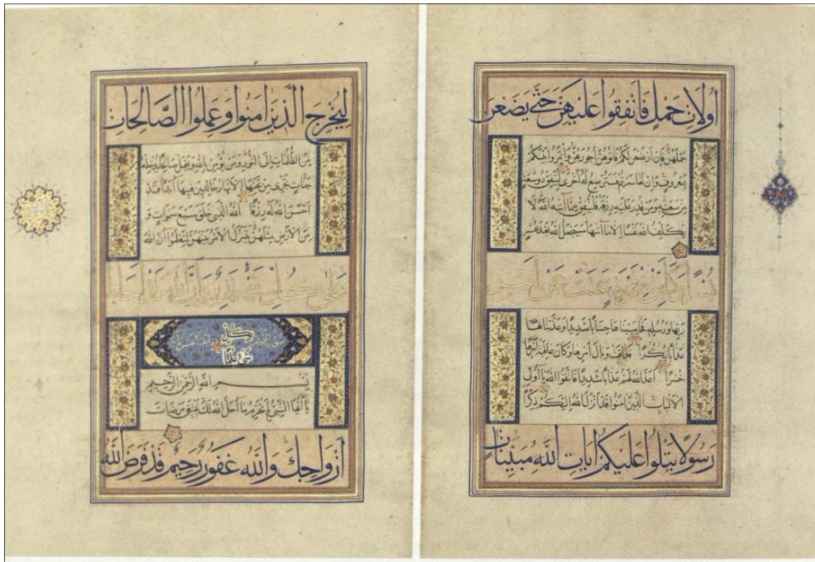 اولات حمل فانفقوا عليهن حتى يضعن
حملهن فان ارضعن لكم فاتوهن اجورهن وأتمروا بينكم
بمعروف وان تعاسرتم فسترضع له اخرى لينفق ذو سعة
من سعته ومن قدر عليه رزقه فلينفق مما اتاه الله لا
يكلف الله نفسا الا ما اتاها سيجعل الله بعد عسر
يسرا وكاين من قرية عتت عن امر
ربها ورسله فحاسبناها حسابا شديدا وعذبناها
عذابا نكرا فذاقت وبال امرها وكان عاقبة امرها
خسرا اعد الله لهم عذابا شديدا فاتقوا الله يا اولي
الالباب الذين امنوا قد انزل الله اليكم ذكرا
رسولا يتلوا عليكم ايات الله مبينات
ليخرج الذين امنوا وعملوا الصالحات
من الظلمات الى النور ومن يؤمن بالله ويعمل صالحا يدخله
جنات تجري من تحتها الانهار خالدين فيها ابدا قد
احسن الله له رزقا الله الذي خلق سبع سموات و
من الارض مثلهن يتنزل الامر بينهن لتعلموا ان الله
على كل شيء قدير وان الله قد احاط
بسم الله الرحمن الرحيم
يا ايها النبي لم تحرم ما احل الله لك تبتغي مرضات
ازواجك والله غفور رحيم قد فرض الله